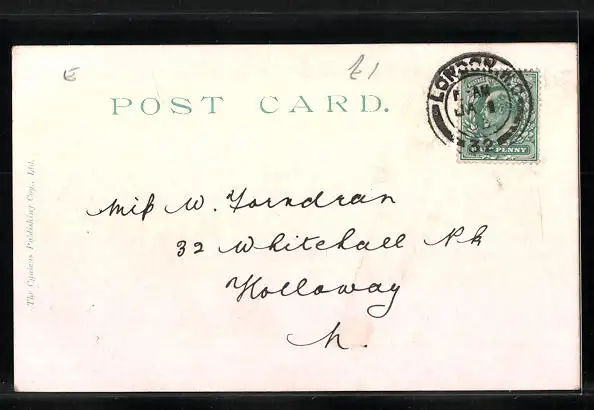 E
£1
POST CARD.
LONDON. W.C.
JA 1
HALFPENNY
Miß W. Forndran
32 Whitehall Pk
Holloway
N.
The Cynicus Publishing Coy., Ltd.